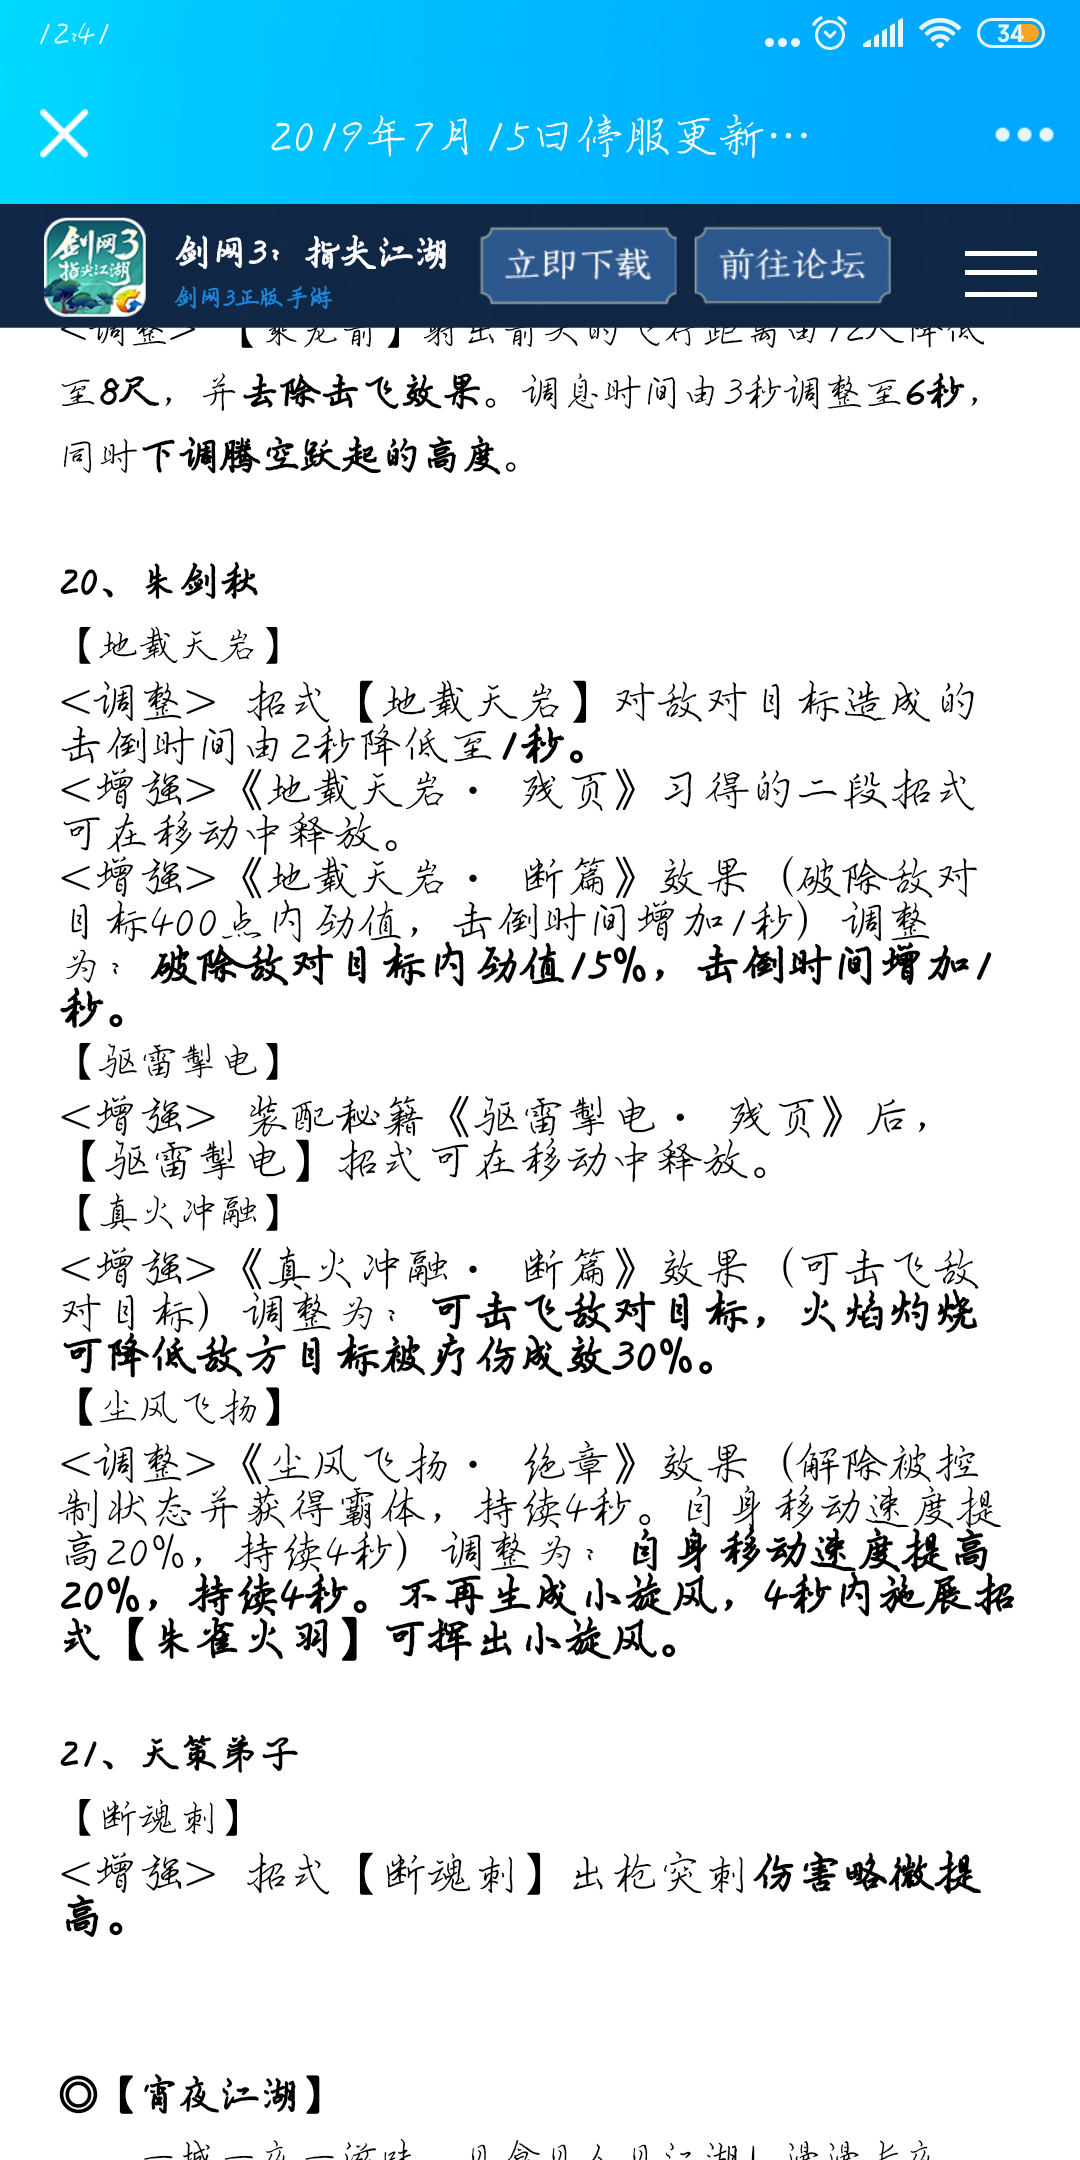 12:41
34
2019年7月15日停服更新…
剑网3
指尖江湖
剑网3：指尖江湖
剑网3正版手游
立即下载
前往论坛
<调整>【乘龙箭】射出箭矢的飞行距离由12尺降低
至8尺，并去除击飞效果。调息时间由3秒调整至6秒，
同时下调腾空跃起的高度。
20、朱剑秋
【地载天岩】
<调整> 招式【地载天岩】对敌对目标造成的
击倒时间由2秒降低至1秒。
<增强>《地载天岩· 残页》习得的二段招式
可在移动中释放。
<增强>《地载天岩· 断篇》效果（破除敌对
目标400点内劲值，击倒时间增加1秒）调整
为：破除敌对目标内劲值15%，击倒时间增加1
秒。
【驱雷掣电】
<增强> 装配秘籍《驱雷掣电· 残页》后，
【驱雷掣电】招式可在移动中释放。
【真火冲融】
<增强>《真火冲融· 断篇》效果（可击飞敌
对目标）调整为：可击飞敌对目标，火焰灼烧
可降低敌方目标被疗伤成效30%。
【尘风飞扬】
<调整>《尘风飞扬· 绝章》效果（解除被控
制状态并获得霸体，持续4秒。自身移动速度提
高20%，持续4秒）调整为：自身移动速度提高
20%，持续4秒。不再生成小旋风，4秒内施展招
式【朱雀火羽】可挥出小旋风。
21、天策弟子
【断魂刺】
<增强> 招式【断魂刺】出枪突刺伤害略微提
高。
◎【宵夜江湖】
一城一夜一滋味，见食见人见江湖！漫漫长夜